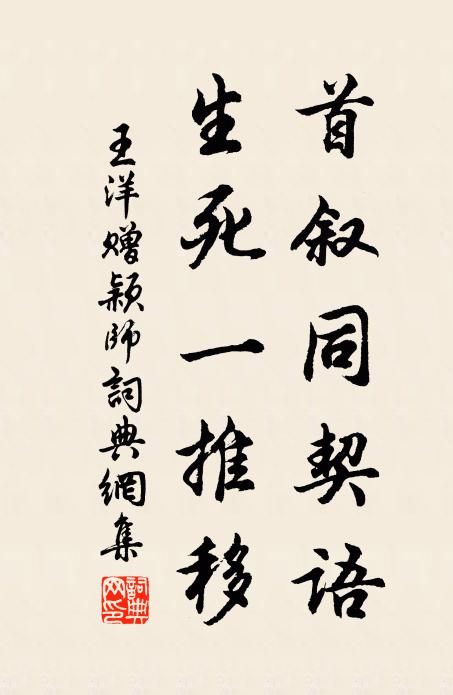 首叙同契语
生死一推移
王洋赠颖师詞典網集
詞典网印